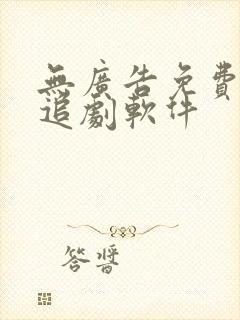 無廣告免費
追劇軟件
答醬